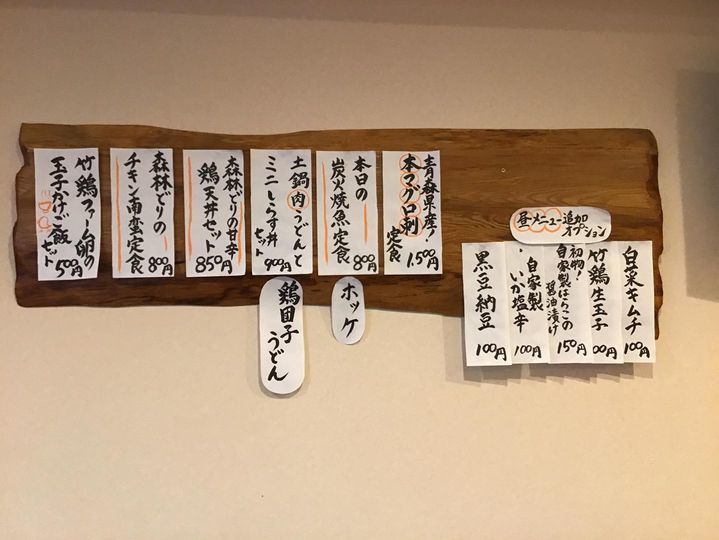 青森県産!
本マグロ刺
定食
1,500円
本日の
炭火焼魚定食
800円
ホッケ
土鍋肉うどんと
ミニしらす丼
セット
900円
鶏団子
うどん
森林どりの甘辛
鶏天丼セット
850円
森林どりの
チキン南蛮定食
800円
竹鶏ファーム卵の
玉子かけご飯
セット
500円
昼メニュー追加
オプション
白菜キムチ
100円
竹鶏生玉子
00円
初物!
自家製はらこの
醤油漬け
150円
自家製
いか塩辛
100円
黒豆納豆
100円